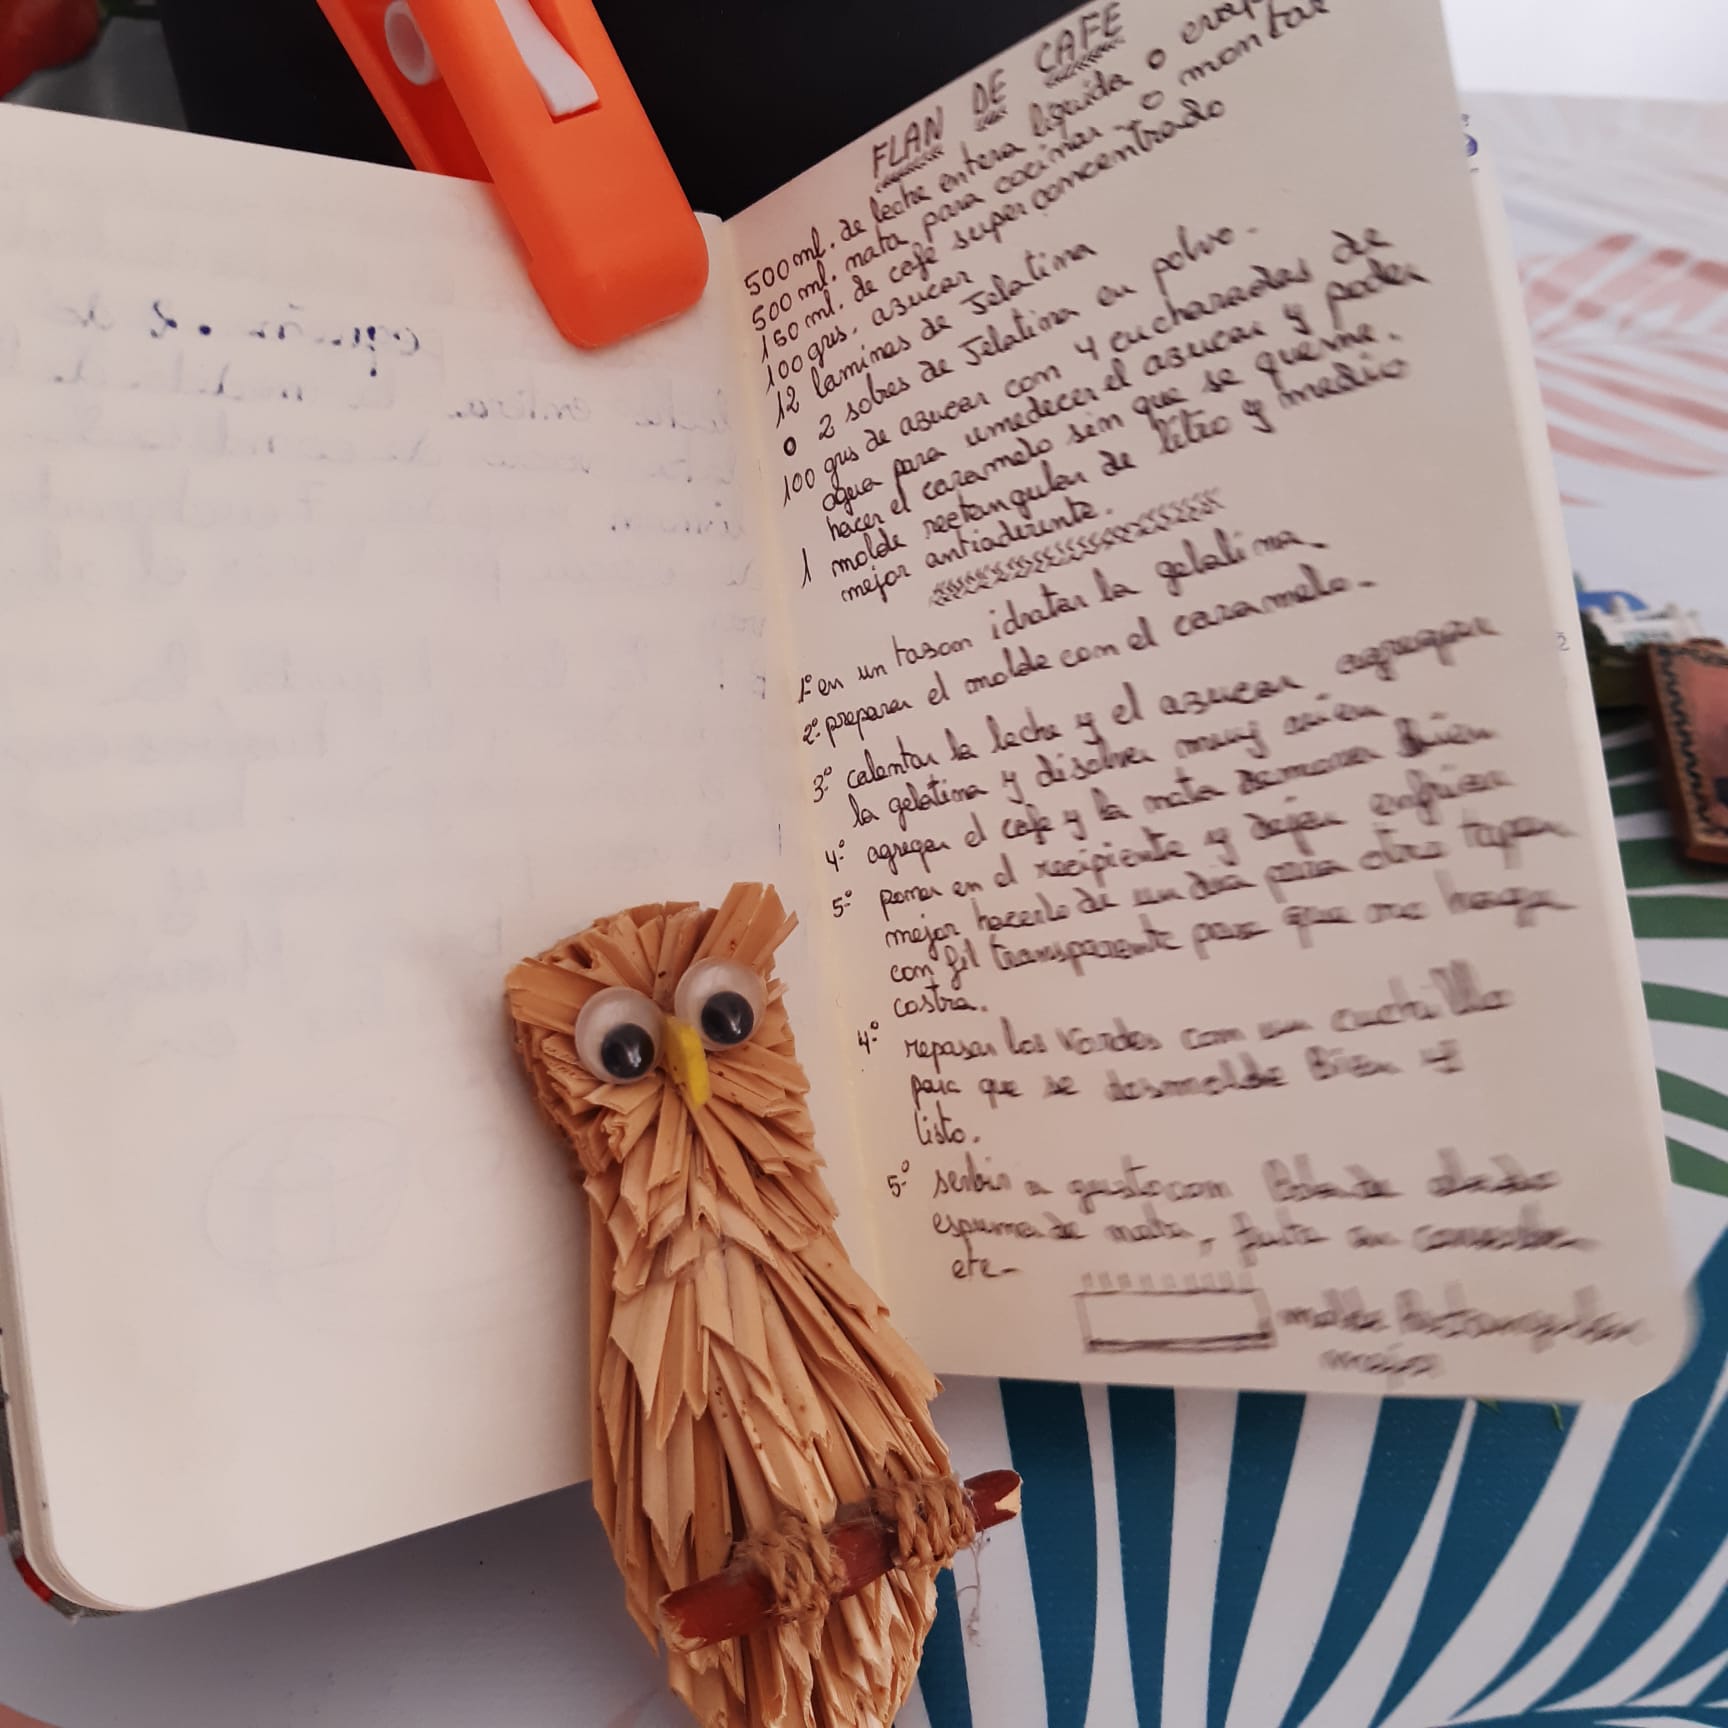 FLAN DE CAFE
500 ml. de leche entera liquida o evap
500 ml. nata para cocinar o montar
150 ml. de café super concentrado
100 grs. azucar
12 laminas de Jelatina
o 2 sobres de Jelatina en polvo.
100 grs de azucar con 4 cucharadas de
agua para umedecer el azucar y poder
hacer el caramelo sin que se queme.
1 molde rectangular de litro y medio
mejor antiaderente.
1º en un tason idratar la gelatina.
2º preparar el molde con el caramelo.
3º calentar la leche y el azucar agregar
la gelatina y disolver muy
4º agregar el cafe y la nata Bien
5º poner en el recipiente y dejar enfriar
mejor hacerlo de un dia para otro tapar
con fil transparente para que no haga
costra.
4º repasar los Vordes con un cuchillo
para que se desmolde Bien y
listo.
5º serbir a gusto con
espuma de nata, fruta en
etc-
molde
mejor